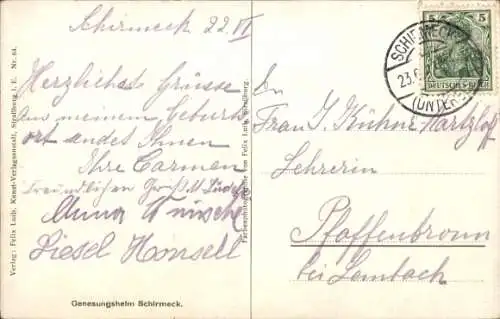 Schirmeck 22. VI
Herzliches Grüsse
aus meinem Geburts
ort sendet Ihnen
Ihre Carmen
Freundlichen Gruß
Anna
Liesel Honsell
Genesungsheim Schirmeck.
Verlag: Felix Luib, Kunst-Verlagsanstalt, Straßburg i. E. Nr. 64.
Farbenphotographie von Felix Luib, Straßburg.
5 5
DEUTSCHES REICH
SCHIRMECK
23.6
(UNTER
An
Frau J. Kühne Hartzlof
Lehrerin
Pfaffenbronn
bei Lembach